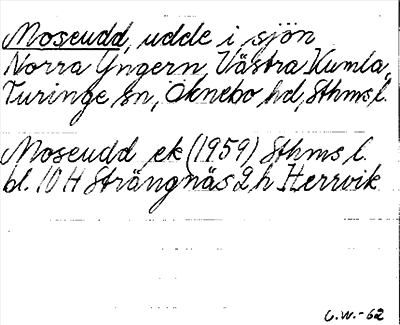 Moseudd, udde i sjön
Norra Yngern, Västra Kumla,
Turinge sn, Öknebo hd, Sthms l.
Moseudd ek (1959) Sthms l.
bl. 10 H Strängnäs 2 h Herrvik
G.W.-62